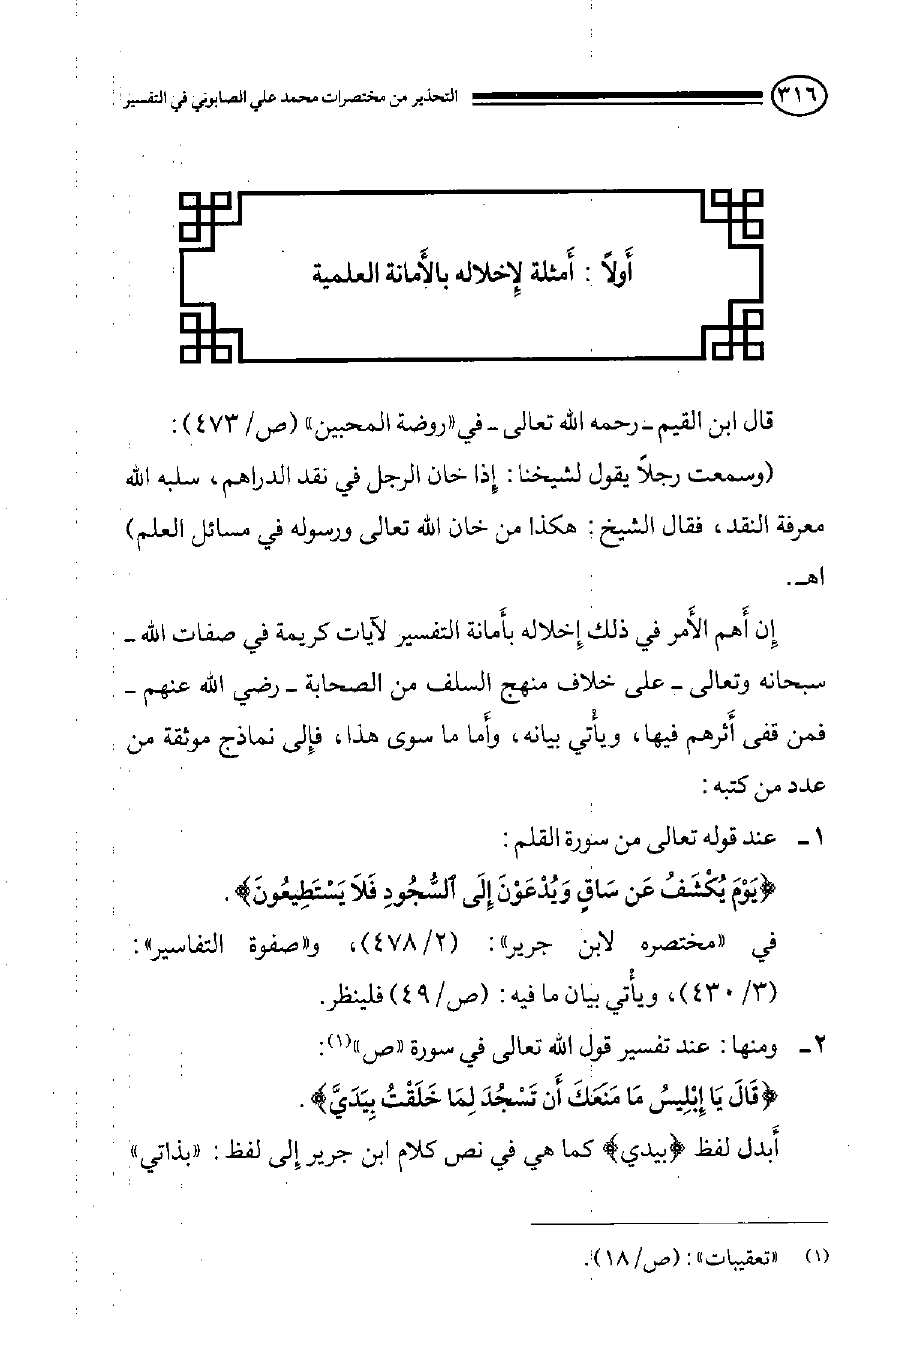 ٣١٦ التحذير من مختصرات محمد علي الصابوني في التفسير
أَولاً : أَمثلة لإِخلاله بالأَمانة العلمية
قال ابن القيم ـ رحمه الله تعالى ـ في «روضة المحبين» (ص/ ٤٧٣):
(وسمعت رجلاً يقول لشيخنا: إِذا خان الرجل في نقد الدراهم، سلبه الله
معرفة النقد، فقال الشيخ: هكذا من خان الله تعالى ورسوله في مسائل العلم)
اهـ.
إِن أَهم الأَمر في ذلك إِخلاله بأَمانة التفسير لآيات كريمة في صفات الله ـ
سبحانه وتعالى ـ على خلاف منهج السلف من الصحابة ـ رضي الله عنهم ـ
فمن قفى أَثرهم فيها، ويأْتي بيانه، وأَما ما سوى هذا، فإِلى نماذج موثقة من
عدد من كتبه:
١ ـ عند قوله تعالى من سورة القلم:
﴿يَوْمَ يُكْشَفُ عَن سَاقٍ وَيُدْعَوْنَ إِلَى ٱلسُّجُودِ فَلَا يَسْتَطِيعُونَ﴾.
في «مختصره لابن جرير»: (٢/ ٤٧٨)، و«صفوة التفاسير»:
(٣/ ٤٣٠)، ويأْتي بيان ما فيه: (ص/ ٤٩) فلينظر.
٢ ـ ومنها: عند تفسير قول الله تعالى في سورة «ص»(١):
﴿قَالَ يَا إِبْلِيسُ مَا مَنَعَكَ أَن تَسْجُدَ لِمَا خَلَقْتُ بِيَدَيَّ﴾.
أَبدل لفظ ﴿بيدي﴾ كما هي في نص كلام ابن جرير إِلى لفظ: «بذاتي»
(١) «تعقيبات»: (ص/ ١٨).